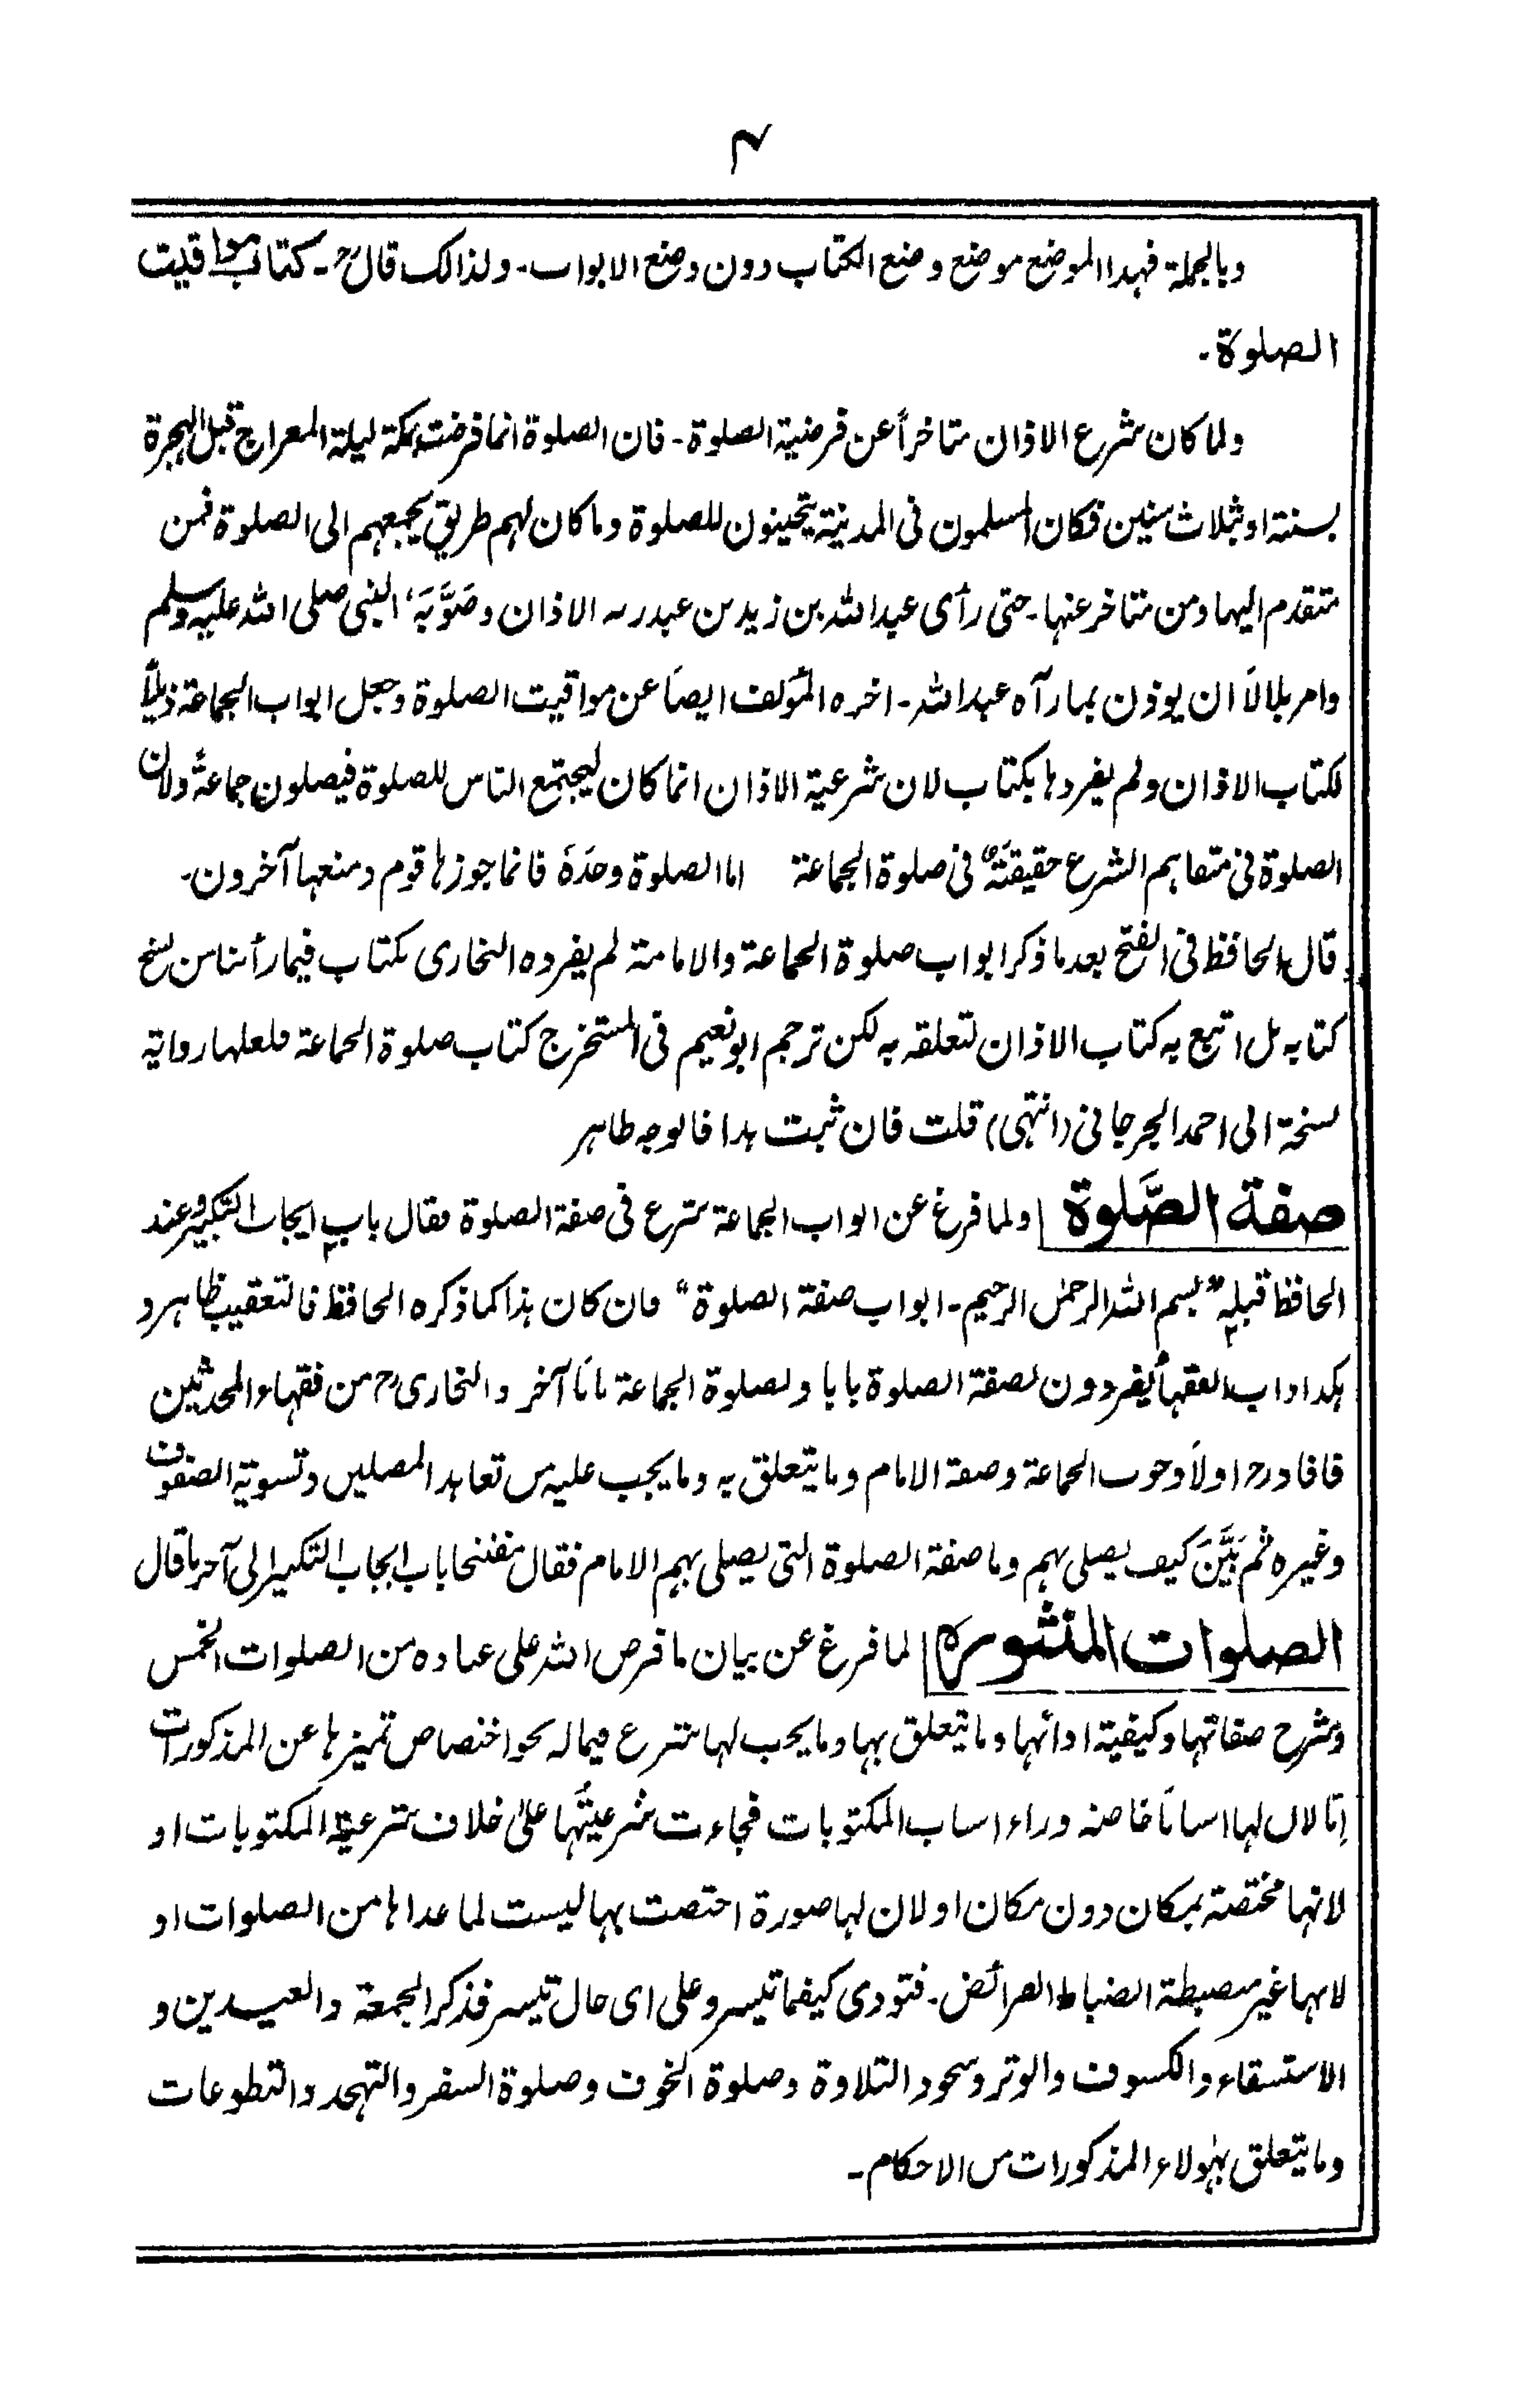 ۴
وبالجملة فهذا الموضع موضع وضع الكتاب دون وضع الابواب۔ ولذالك قال رح۔ كتاب مواقيت
الصلوة۔
ولما كان شرع الاذان متاخراً عن فرضية الصلوة۔ فان الصلوة انما فرضت بمكة ليلة المعراج قبل الهجرة
بسنة او بثلاث سنين فكان المسلمون فى المدينة يتحينون للصلوة وما كان لهم طريق يجمعهم الى الصلوة فمن
متقدم اليها ومن متاخر عنها۔ حتى رأى عبد الله بن زيد بن عبد ربه الاذان وصَوَّبَهٗ النبى صلى الله عليه وسلم
وامر بلالاً ان يوذن بما رآه عبد الله۔ اخره المؤلف ايضاً عن مواقيت الصلوة وجعل ابواب الجماعة ذيلاً
لكتاب الاذان ولم يفردها بكتاب لان شرعية الاذان انما كان ليجتمع الناس للصلوة فيصلون جماعةً ولان
الصلوة فى متفاهم الشرع حقيقةٌ فى صلوة الجماعة اما الصلوة وحدَهٗ فانما جوزها قوم ومنعها آخرون۔
قال الحافظ فى الفتح بعد ما ذكر ابواب صلوة الجماعة والامامة لم يفرده البخارى بكتاب فيما رأينا من نسخ
كتابه بل اتبع به كتاب الاذان لتعلقه به لكن ترجم ابو نعيم فى المستخرج كتاب صلوة الجماعة فلعلها رواية
نسخة ابى احمد الجرجانى (انتهى) قلت فان ثبت هذا فالوجه ظاهر
صفة الصَّلوة | ولما فرغ عن ابواب الجماعة شرع فى صفة الصلوة فقال باب ايجاب التكبير وعند
الحافظ قبله "بسم الله الرحمٰن الرحيم۔ ابواب صفة الصلوة" فان كان هذا كما ذكره الحافظ فالتعقيب ظاهر و
هكذا داب الفقهاء يفردون لصفة الصلوة بابا ولصلوة الجماعة باباً آخر والبخارى رح من فقهاء المحدثين
فافاد رح اولاً وجوب الجماعة وصفة الامام وما يتعلق به وما يجب عليه من تعاهد المصلين وتسوية الصفوف
وغيره ثم بَيَّنَ كيف يصلى بهم وما صفة الصلوة التى يصلى بهم الامام فقال مفتتحا باب ايجاب التكبير الى آخر ما قال
الصلوات المنثوره | لما فرغ عن بيان ما فرض الله على عباده من الصلوات الخمس
وشرح صفاتها وكيفية ادائها وما يتعلق بها وما يجب لها شرع فيما له نحو اختصاص تميزها عن المذكورات
اِمّا لان لها اسباباً خاصه وراء اسباب المكتوبات فجاءت شرعيتُها علىٰ خلاف شرعية المكتوبات او
لانها مختصة بمكان دون مكان او لان لها صورة اختصت بها ليست لما عداها من الصلوات او
لانها غير منضبطة انضباط الفرائض۔ فتودى كيفما تيسر وعلى اى حال تيسر فذكر الجمعة والعيدين و
الاستسقاء والكسوف والوتر وسجود التلاوة وصلوة الخوف وصلوة السفر والتهجد والتطوعات
وما يتعلق بهٰولاء المذكورات من الاحكام۔